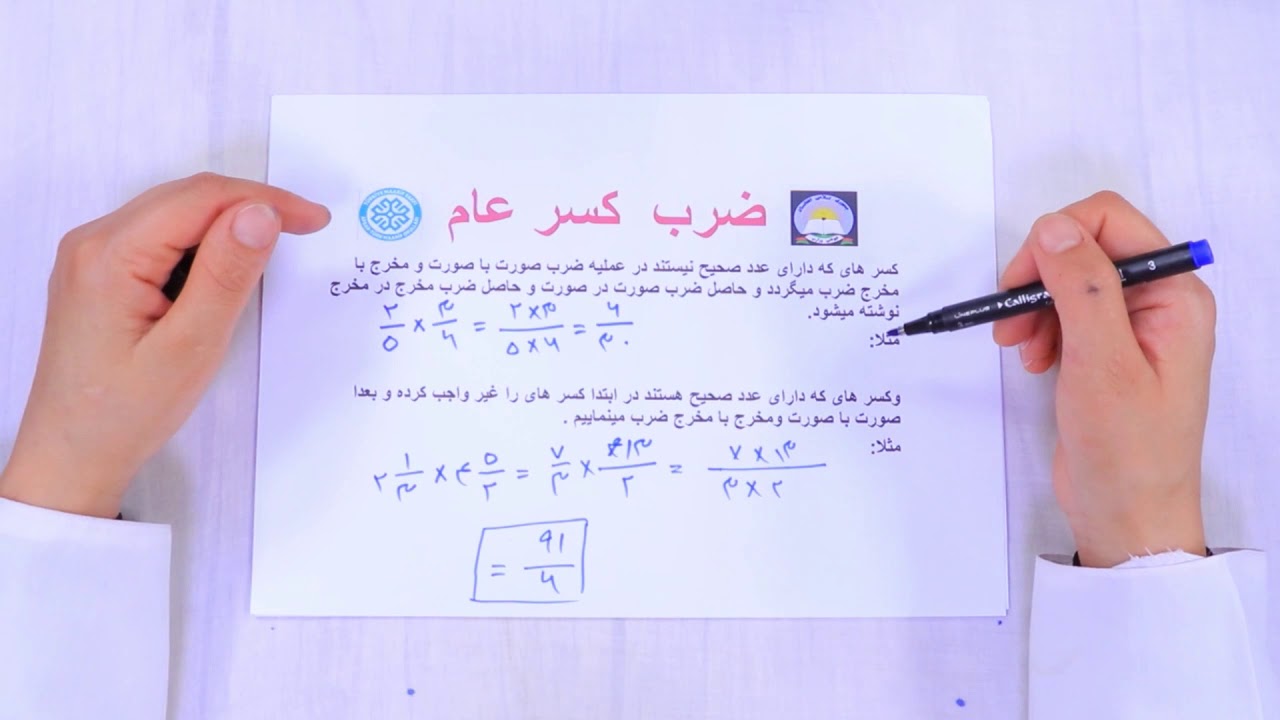 ضرب کسر عام
کسر های که دارای عدد صحیح نیستند در عملیه ضرب صورت با صورت و مخرج با
مخرج ضرب میگردد و حاصل ضرب صورت در صورت و حاصل ضرب مخرج در مخرج
نوشته میشود.
مثلا:
۲/۵ × ۳/۶ = ۲×۳/۵×۶ = ۶/۳۰
وکسر های که دارای عدد صحیح هستند در ابتدا کسر های را غیر واجب کرده و بعدا
صورت با صورت ومخرج با مخرج ضرب مینماییم .
مثلا:
۲ ۱/۳ × ۴ ۵/۲ = ۷/۳ × ۱۳/۲ = ۷×۱۳/۳×۲
= ۹۱/۶
3